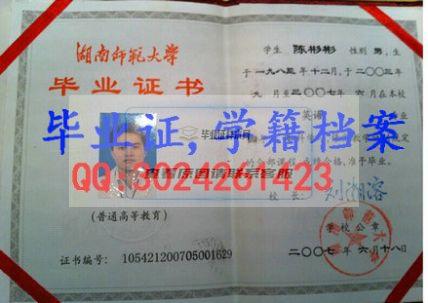 湖南师范大学
毕业证书
(普通高等教育)
证书编号: 105421200705001629
学生 陈彬彬 性别 男,生
于一九八三年十二月,于二〇〇三年
九月至二〇〇七年六月在本校
英语
的全部课程,成绩合格,准予毕业。
校 长:
学校公章
二〇〇七年六月十八日
毕业证,学籍档案
QQ:3024261423
查看原图请联系客服